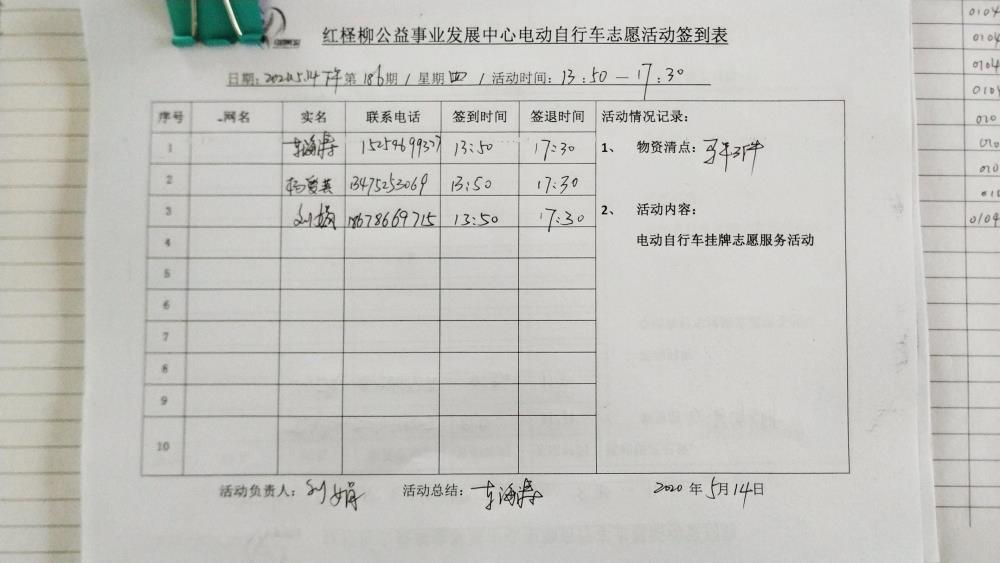 红柽柳公益事业发展中心电动自行车志愿活动签到表
日期：2020.5.14下午第186期 / 星期四 / 活动时间：13:50—17:30
序号 网名 实名 联系电话 签到时间 签退时间 活动情况记录：
1 13:50 17:30 1、 物资清点：
2 杨爱英 13475253069 13:50 17:30
3 刘娟 18678669715 13:50 17:30 2、 活动内容：
4 电动自行车挂牌志愿服务活动
5
6
7
8
9
10
活动负责人：刘娟 活动总结： 2020年5月14日
0104
0104
0104
0104
010
010
010
010
0104